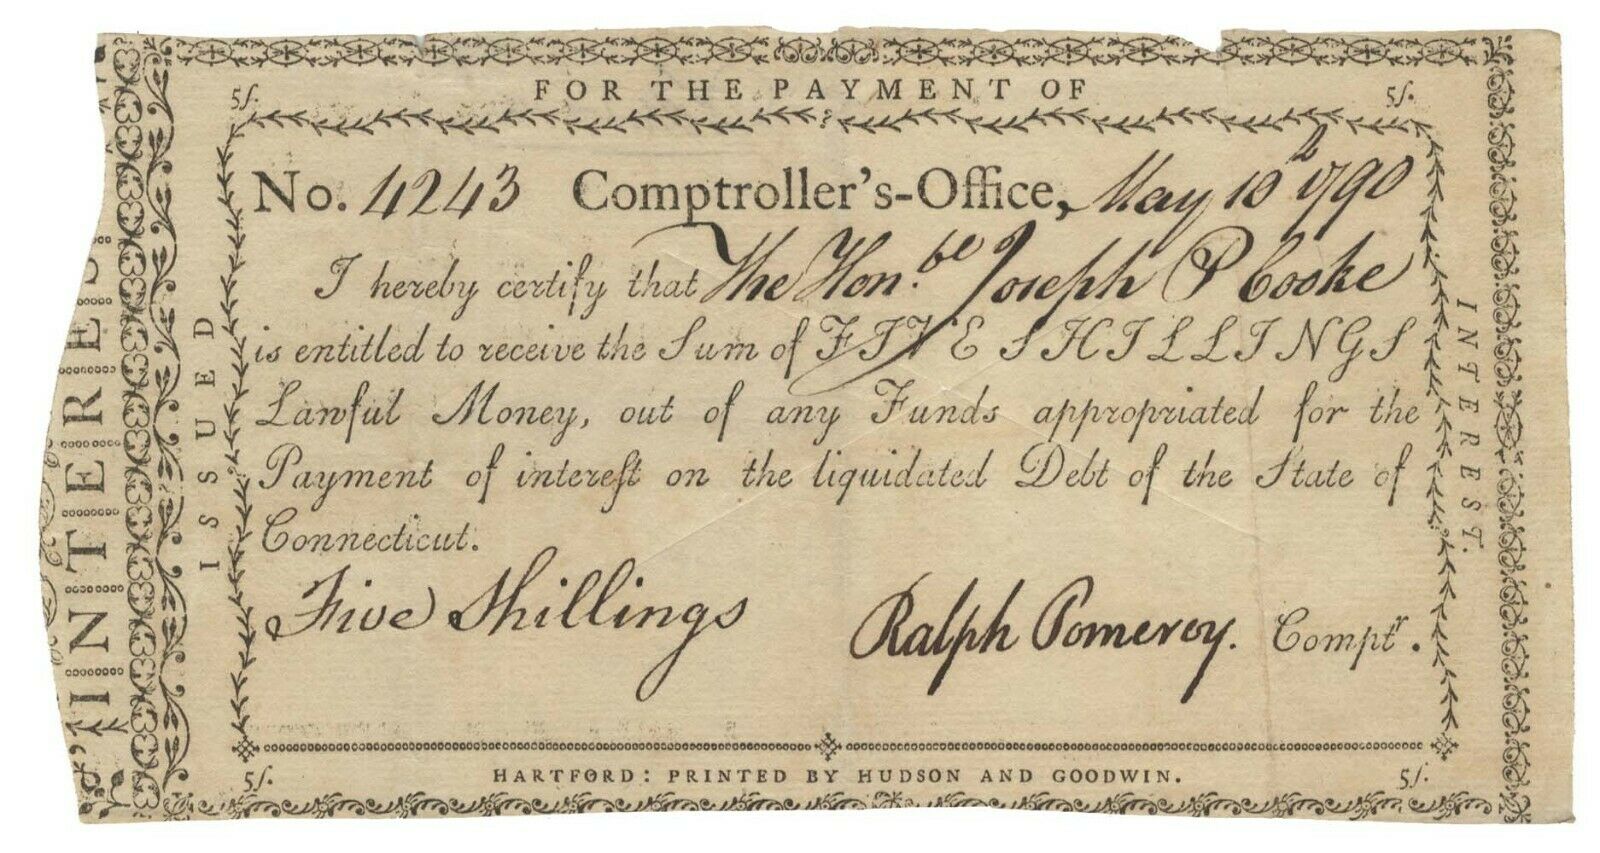 FOR THE PAYMENT OF
5ſ. 5ſ.
No. 4243 Comptroller's-Office, May 10th 1790
I hereby certify that The Honble Joseph P Cooke
is entitled to receive the Sum of FIVE SHILLINGS
Lawful Money, out of any Funds appropriated for the
Payment of intereſt on the liquidated Debt of the State of
Connecticut.
Five Shillings Ralph Pomeroy. Comptr.
HARTFORD: PRINTED BY HUDSON AND GOODWIN.
5ſ. 5ſ.
INTERES
ISSUED
INTEREST.